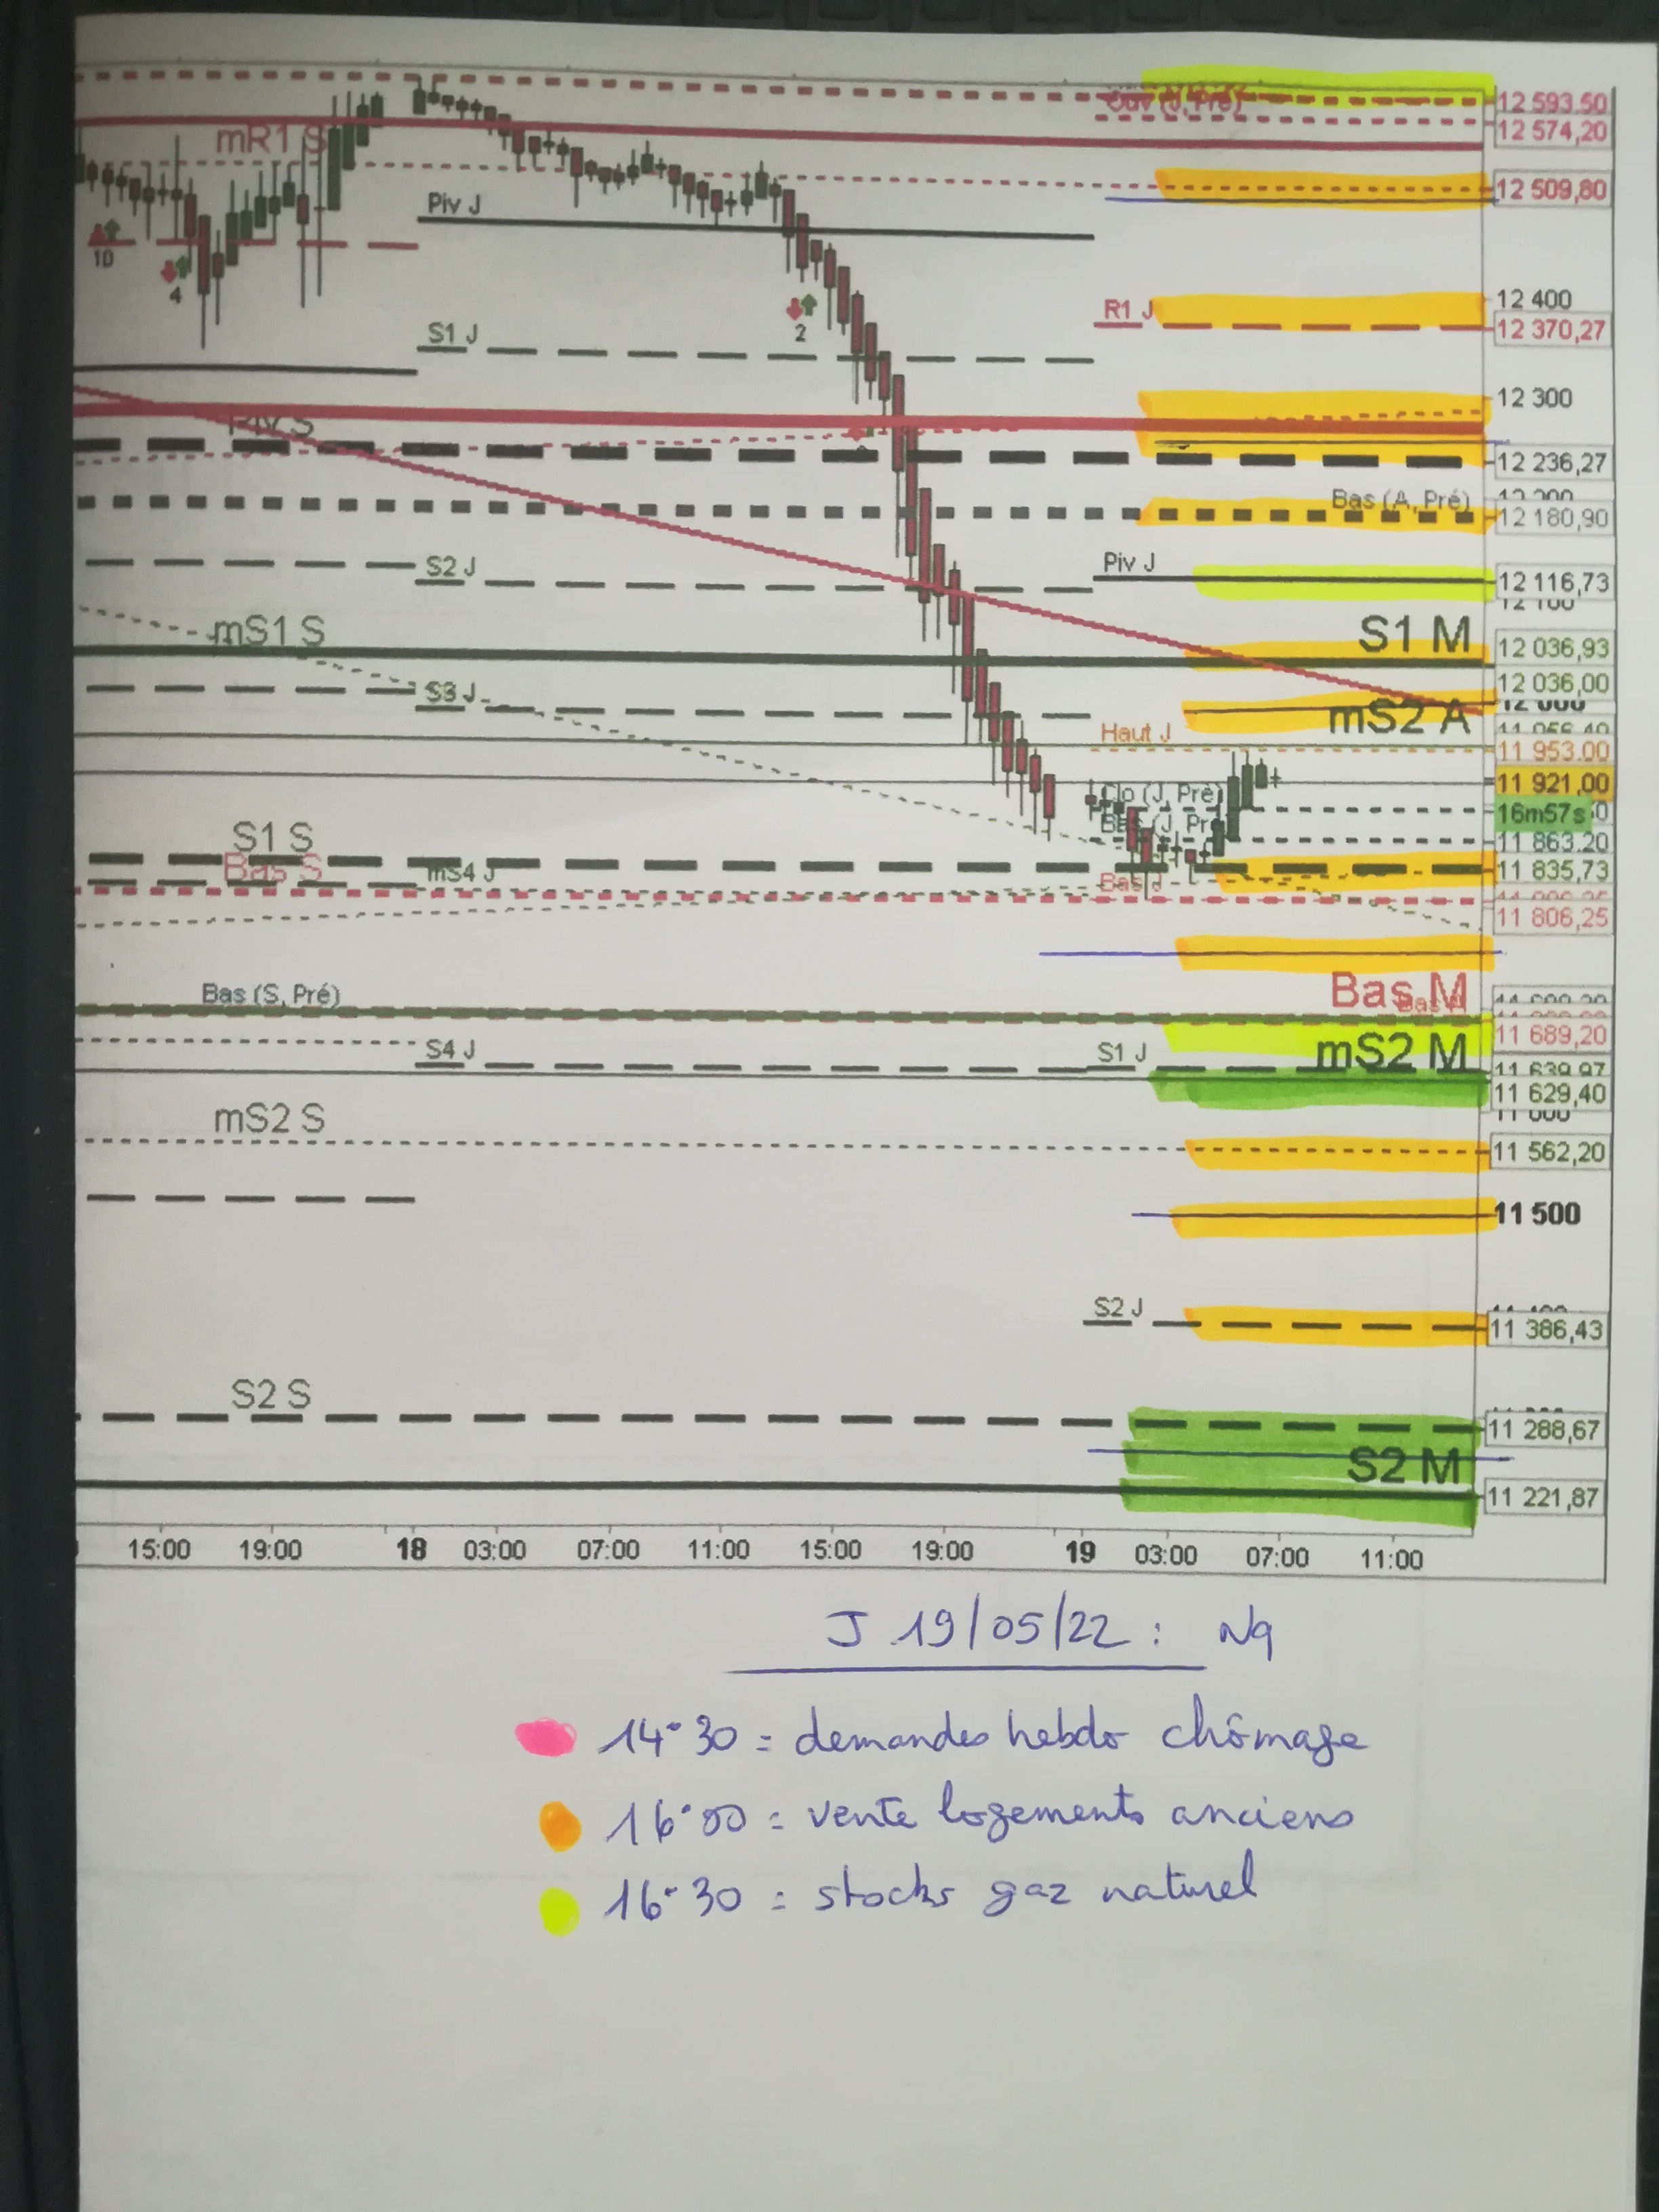 12 593.50
mR1 S
12 574,20
12 509,80
Piv J
10
4
12 400
R1 J
2
12 370,27
S1 J
12 300
Piv S
12 236,27
Bas (A, Pré)
12 180,90
S2 J
Piv J
12 116,73
mS1 S
S1 M
12 036,93
12 036,00
S3 J
mS2 A
Haut J
11 953.00
11 921,00
Clo (J, Pré)
16m57s
11 863.20
S1 S
Bas S
mS4 J
Bas J
11 835,73
11 806,25
Bas (S, Pré)
Bas M
11 689,20
S4 J
S1 J
mS2 M
11 639,97
11 629,40
mS2 S
11 562,20
11 500
S2 J
11 386,43
S2 S
11 288,67
S2 M
11 221,87
15:00 19:00 18 03:00 07:00 11:00 15:00 19:00 19 03:00 07:00 11:00
J 19/05/22 : Nq
14°30 = demandes hebdo chômage
16°00 = vente logements anciens
16°30 = stocks gaz naturel